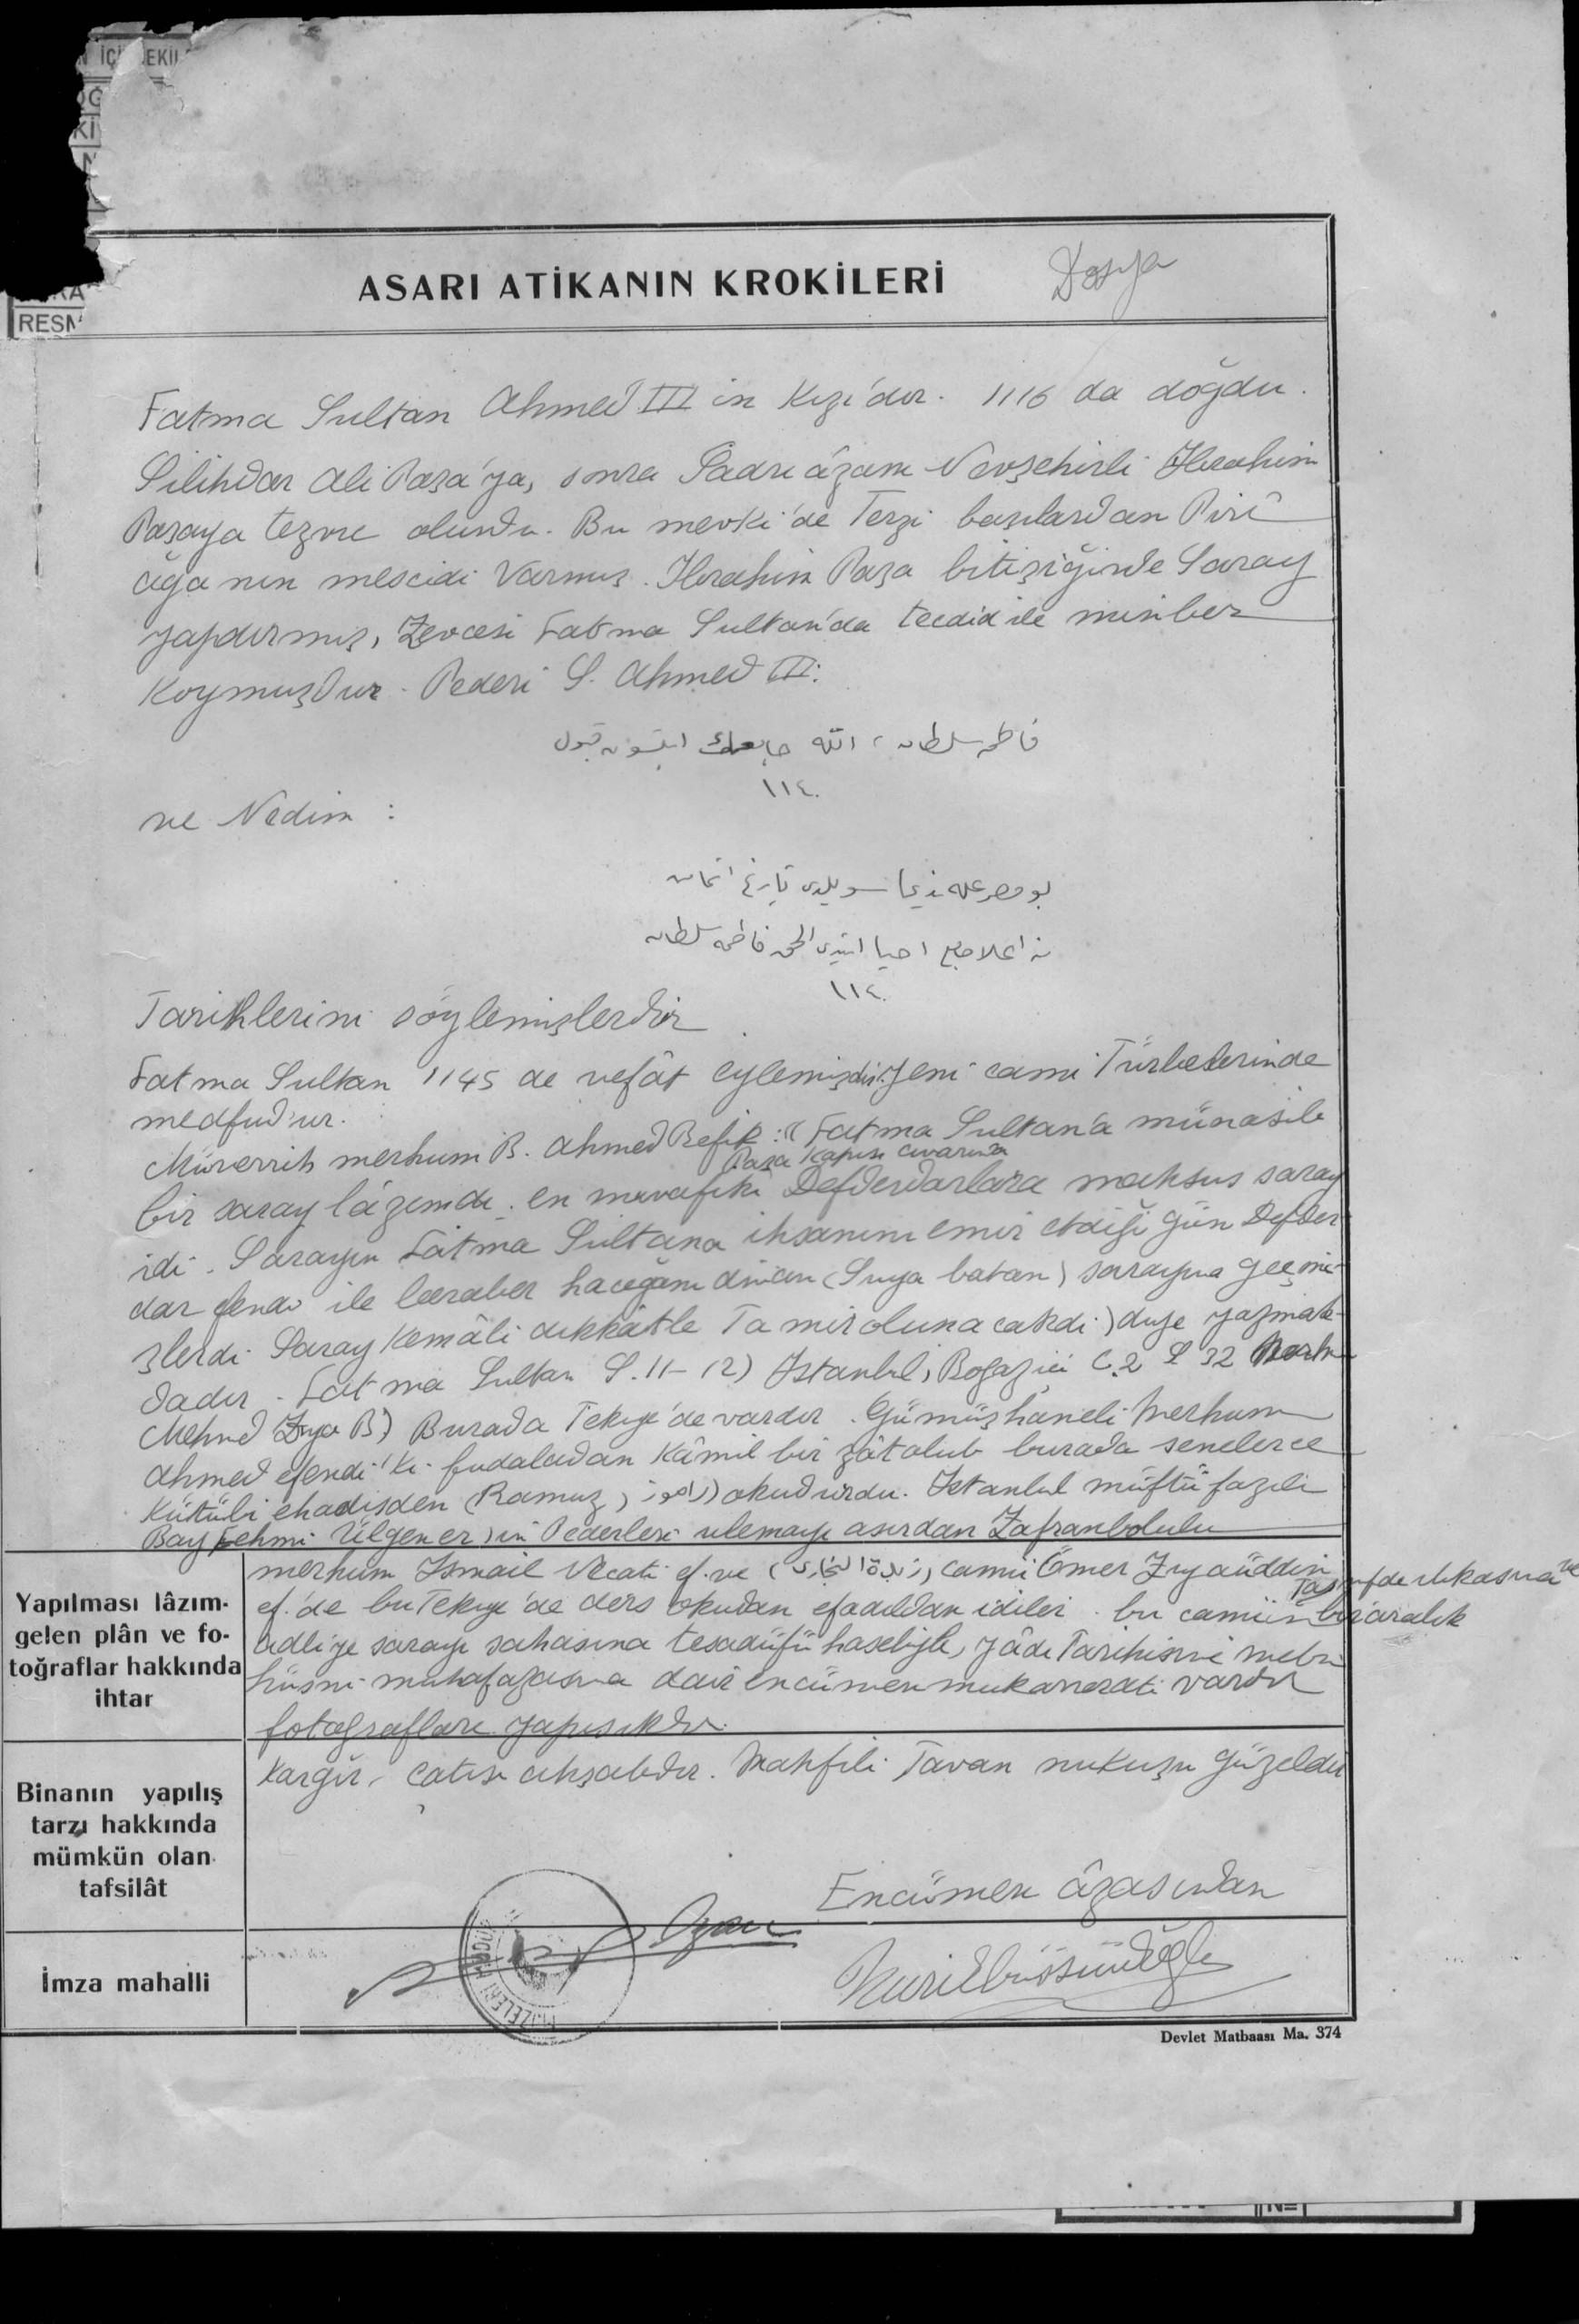 İÇİ EKİL
RESM
ASARI ATİKANIN KROKİLERİ
Dosya
Fatma Sultan Ahmed III in Kızı'dır. 1116 da doğdu.
Silihdar Ali Paşa'ya, sonra Sadrıâzam Nevşehirli İbrahim
Paşaya tezvic olundu. Bu mevki'de Terzi başılardan Pirî
ağa'nın mescidi Varmış. İbrahim Paşa bitişiğinde Saray
yapdırmış, Zevcesi Fatma Sultan'da tecdid ile minber
Koymuşdur. Pederi S. Ahmed III:
فاطمه سلطانه ، الله جامعك ايتسون قبول
١١٤٠
ve Nedim :
بو مصرعله نديما سويلدى تاريخ اتمامن
نه اعلا جامع احيا ايتدى الحق فاطمه سلطان
١١٤٠
Tarihlerini söylemişlerdir
Fatma Sultan 1145 de vefât eylemişdir. Yeni cami Türbelerinde
medfud'ur.
Müverrih merhum B. Ahmed Refik : "Fatma Sultan'a münasib
Paşa Kapısı civarında
bir saray lâzımdı. en muvafıkı Defderdarlara mahsus saray
idi. Sarayın Fatma Sultana ihsanını emir etdiği gün Defder
dar efendi ile beraber hacegânı divan (Suya batan) sarayına geçmi-
şlerdi. Saray Kemâli dikkâtle Tamir olunacakdı) diye yazmak-
dadır. Fatma Sultan S. 11-12) İstanbul, Boğaziçi C.2 S 32 Merhum
Mehmed Ziya B) Burada Tekye'de vardır. Gümüşhaneli Merhum
Ahmed efendi'ki fudaladan Kâmil bir zât olub burada senelerce
Kütübi ehadisden (Ramuz, راموز) okudurdu. İstanbul müftü fazılı
Bay Fehmi Ülgener'in Pederleri ulemayı asırdan Zafranbolulu
Yapılması lâzım-
gelen plân ve fo-
toğraflar hakkında
ihtar
merhum İsmail Necati ef. ve (زبدة البخارى) camii Ömer Ziyaüddin
ef.'de bu Tekye'de ders okudan efadıldan idiler. bu camiin bir aralık
adliye sarayı sahasına tesadüfü hasebiyle, yâdı Tarihisini
hüsni muhafazasına dair encümen mukarreratı vardır
fotoğrafları yapışıkdır.
Binanın yapılış
tarzı hakkında
mümkün olan
tafsilât
Kargir, çatısı ahşabdır. Mahfili Tavan nukuşu güzeldir
Encümen âzasından
İmza mahalli
Ozan
MÜZELERİ MÜDÜR
Devlet Matbaası Ma. 374